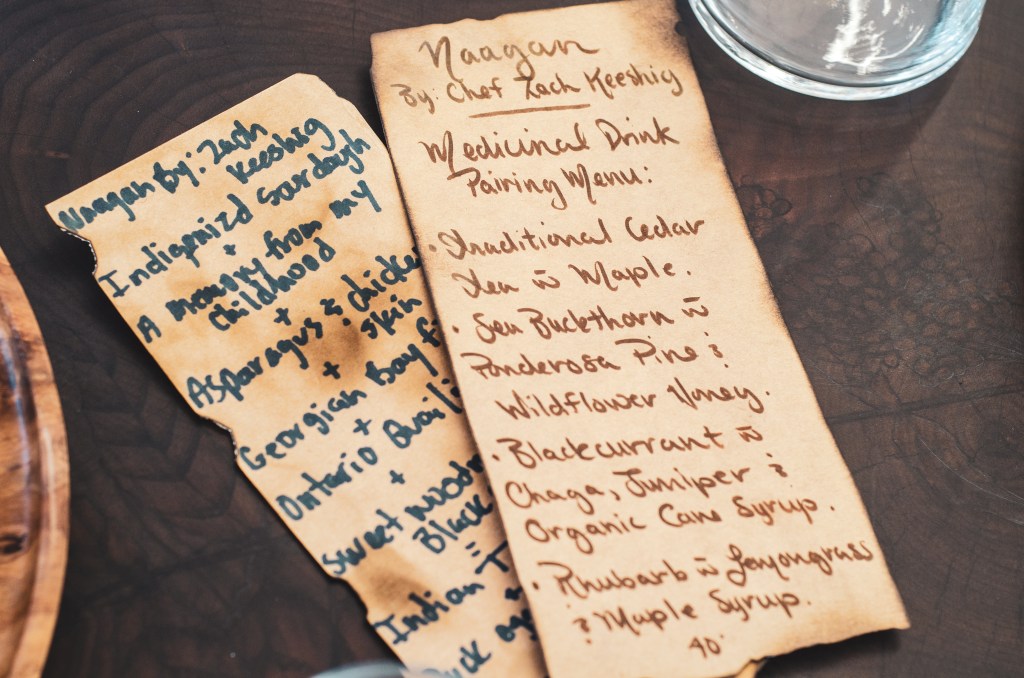 Naagan By: Zach
Keeshig
Indigenized Sourdough
+
A memory from my
childhood
+
Asparagus & chicken
skin
+
Georgian Bay
+
Ontario Quail
+
Sweet
Black
=
Indian
Naagan
By: Chef Zach Keeshig
Medicinal Drink
Pairing Menu:
• Traditional Cedar
Tea w̄ Maple.
• Sea Buckthorn w̄
Ponderosa Pine &
Wildflower Honey.
• Blackcurrant w̄
Chaga, Juniper &
Organic Cane Syrup.
• Rhubarb w̄ Lemongrass
& Maple Syrup.
40